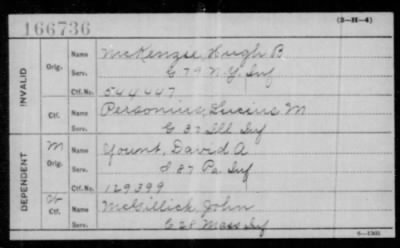 166736
(3-H-4)
INVALID
Orig.
Name McKenzie Hugh B
Serv. G 79 N.Y. Inf
Ctf. No. 544447
Ctf.
Name Personius, Lucius M
Serv. G 37 Ill Inf
DEPENDENT
M
Orig.
Name Yount, David A
Serv. I 87 Pa Inf
Ctf. No. 129399
Ctf.
Name McGillick, John
Serv. G 28 Mass Inf
6—1305